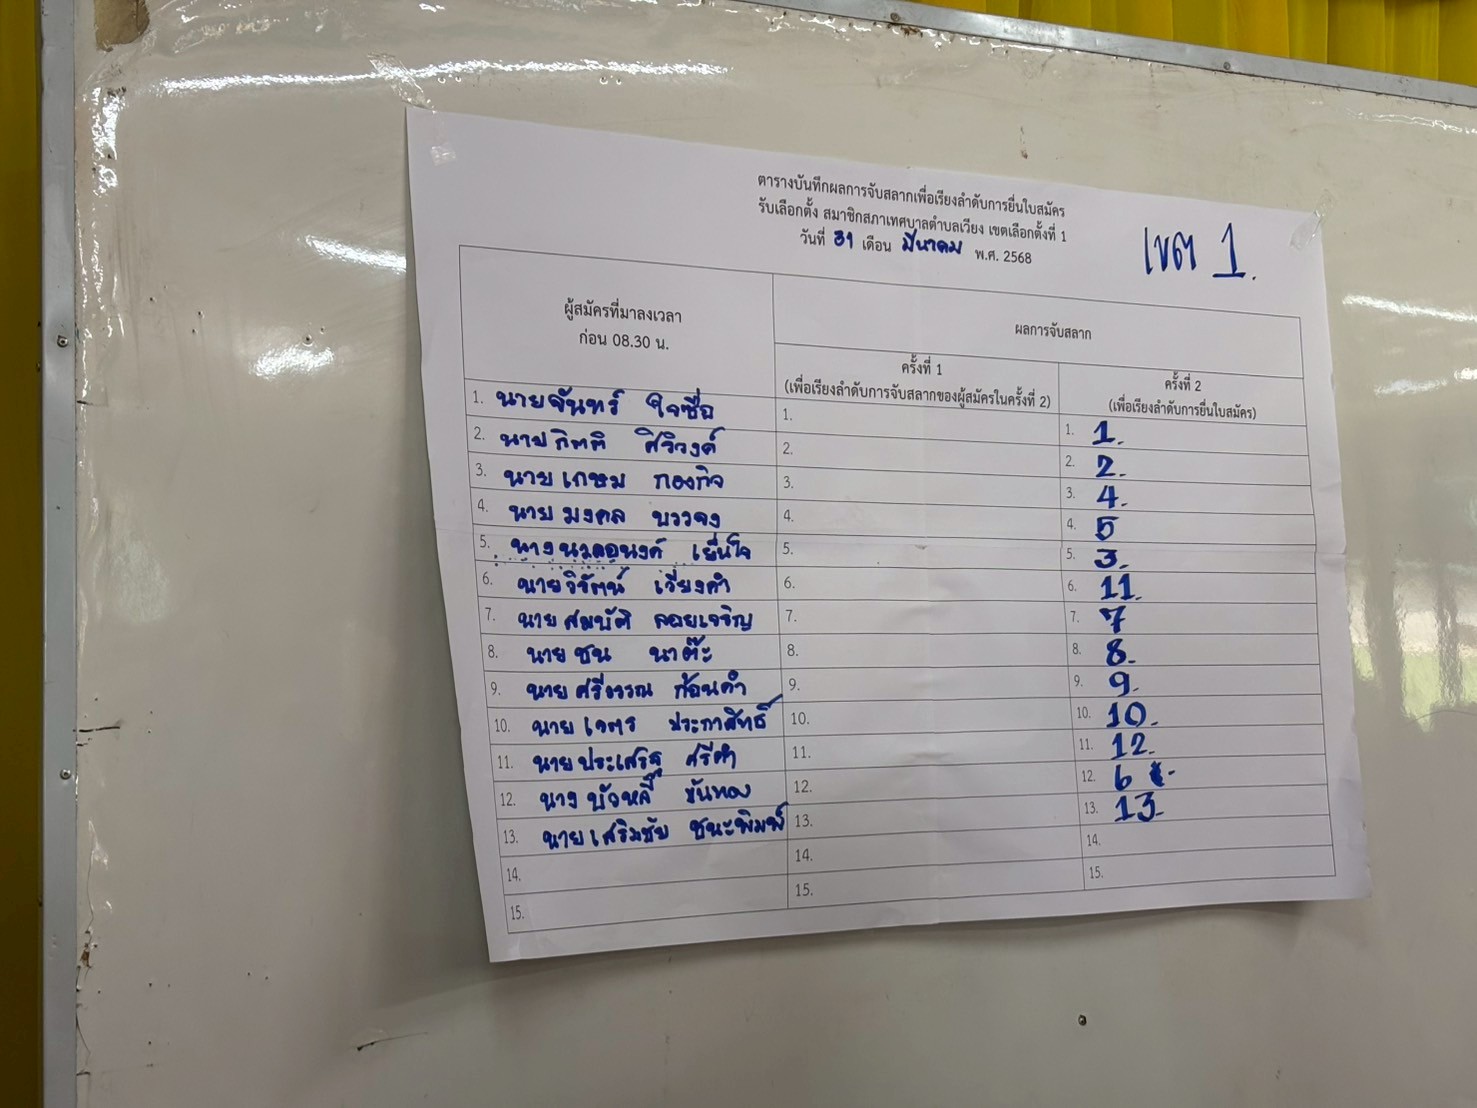 ตารางบันทึกผลการจับสลากเพื่อเรียงลำดับการยื่นใบสมัคร
รับเลือกตั้ง สมาชิกสภาเทศบาลตำบลเวียง เขตเลือกตั้งที่ 1
วันที่ 31 เดือน มีนาคม พ.ศ. 2568
เขต 1.
ผู้สมัครที่มาลงเวลา
ก่อน 08.30 น.
ผลการจับสลาก
ครั้งที่ 1
(เพื่อเรียงลำดับการจับสลากของผู้สมัครในครั้งที่ 2)
ครั้งที่ 2
(เพื่อเรียงลำดับการยื่นใบสมัคร)
1. นายจันทร์ ใจซื่อ 1. 1. 1.
2. นายกิตติ ศิริวงค์ 2. 2. 2.
3. นายเกษม กองกิจ 3. 3. 4.
4. นายมงคล บรรจง 4. 4. 5
5. นางนวลอนงค์ เย็นใจ 5. 5. 3.
6. นายวิรัตน์ เวียงคำ 6. 6. 11.
7. นายสมบัติ ลอยเจริญ 7. 7. 7
8. นายชน นาต๊ะ 8. 8. 8.
9. นายศรีวรรณ ก้อนคำ 9. 9. 9.
10. นายเจตร ประกาสิทธิ์ 10. 10. 10.
11. นายประเสริฐ ศรีคำ 11. 11. 12.
12. นางบัวหลี ขันทอง 12. 12. 6
13. นายเสริมชัย ชนะพิมพ์ 13. 13. 13.
14. 14. 14.
15. 15. 15.